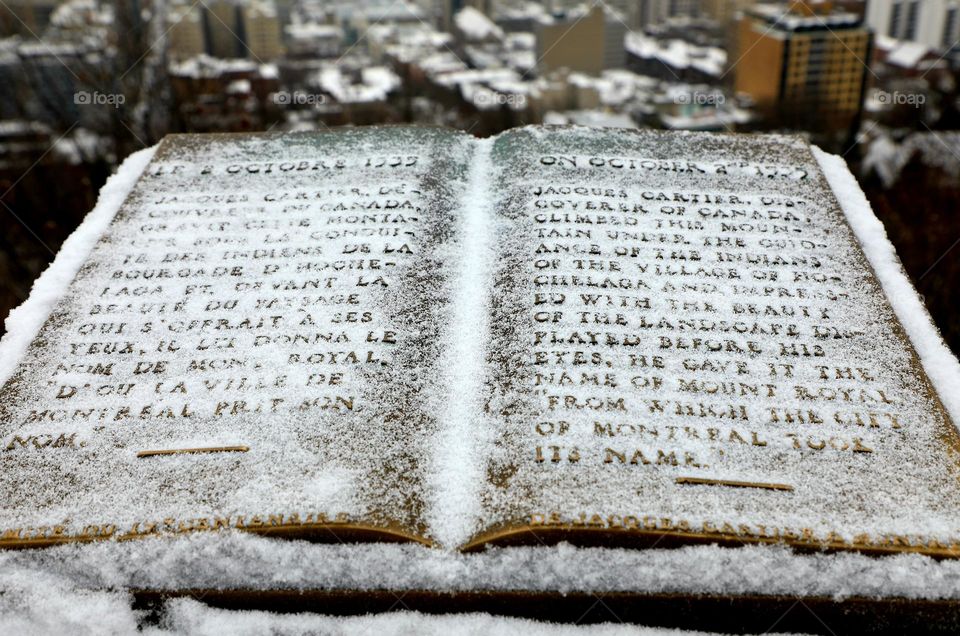 LE 2 OCTOBRE 1535
JACQUES CARTIER, DÉ-
COUVREUR DU CANADA,
GRAVIT CETTE MONTA-
GNE SOUS LA CONDUI-
TE DES INDIENS DE LA
BOURGADE D'HOCHE-
LAGA ET, DEVANT LA
BEAUTÉ DU PAYSAGE
QUI S'OFFRAIT À SES
YEUX, IL LUI DONNA LE
NOM DE MONT ROYAL,
"D'OÙ LA VILLE DE
MONTREAL PRIT SON
NOM."
ON OCTOBER 2ND 1535
JACQUES CARTIER, DIS-
COVERER OF CANADA,
CLIMBED THIS MOUN-
TAIN UNDER THE GUID-
ANCE OF THE INDIANS
OF THE VILLAGE OF HO-
CHELAGA AND IMPRESS-
ED WITH THE BEAUTY
OF THE LANDSCAPE DIS-
PLAYED BEFORE HIS
EYES, HE GAVE IT THE
NAME OF MOUNT ROYAL
"FROM WHICH THE CITY
OF MONTREAL TOOK
ITS NAME."
DU CENTENAIRE DE JACQUES CARTIER
foap
foap
foap
foap
foap